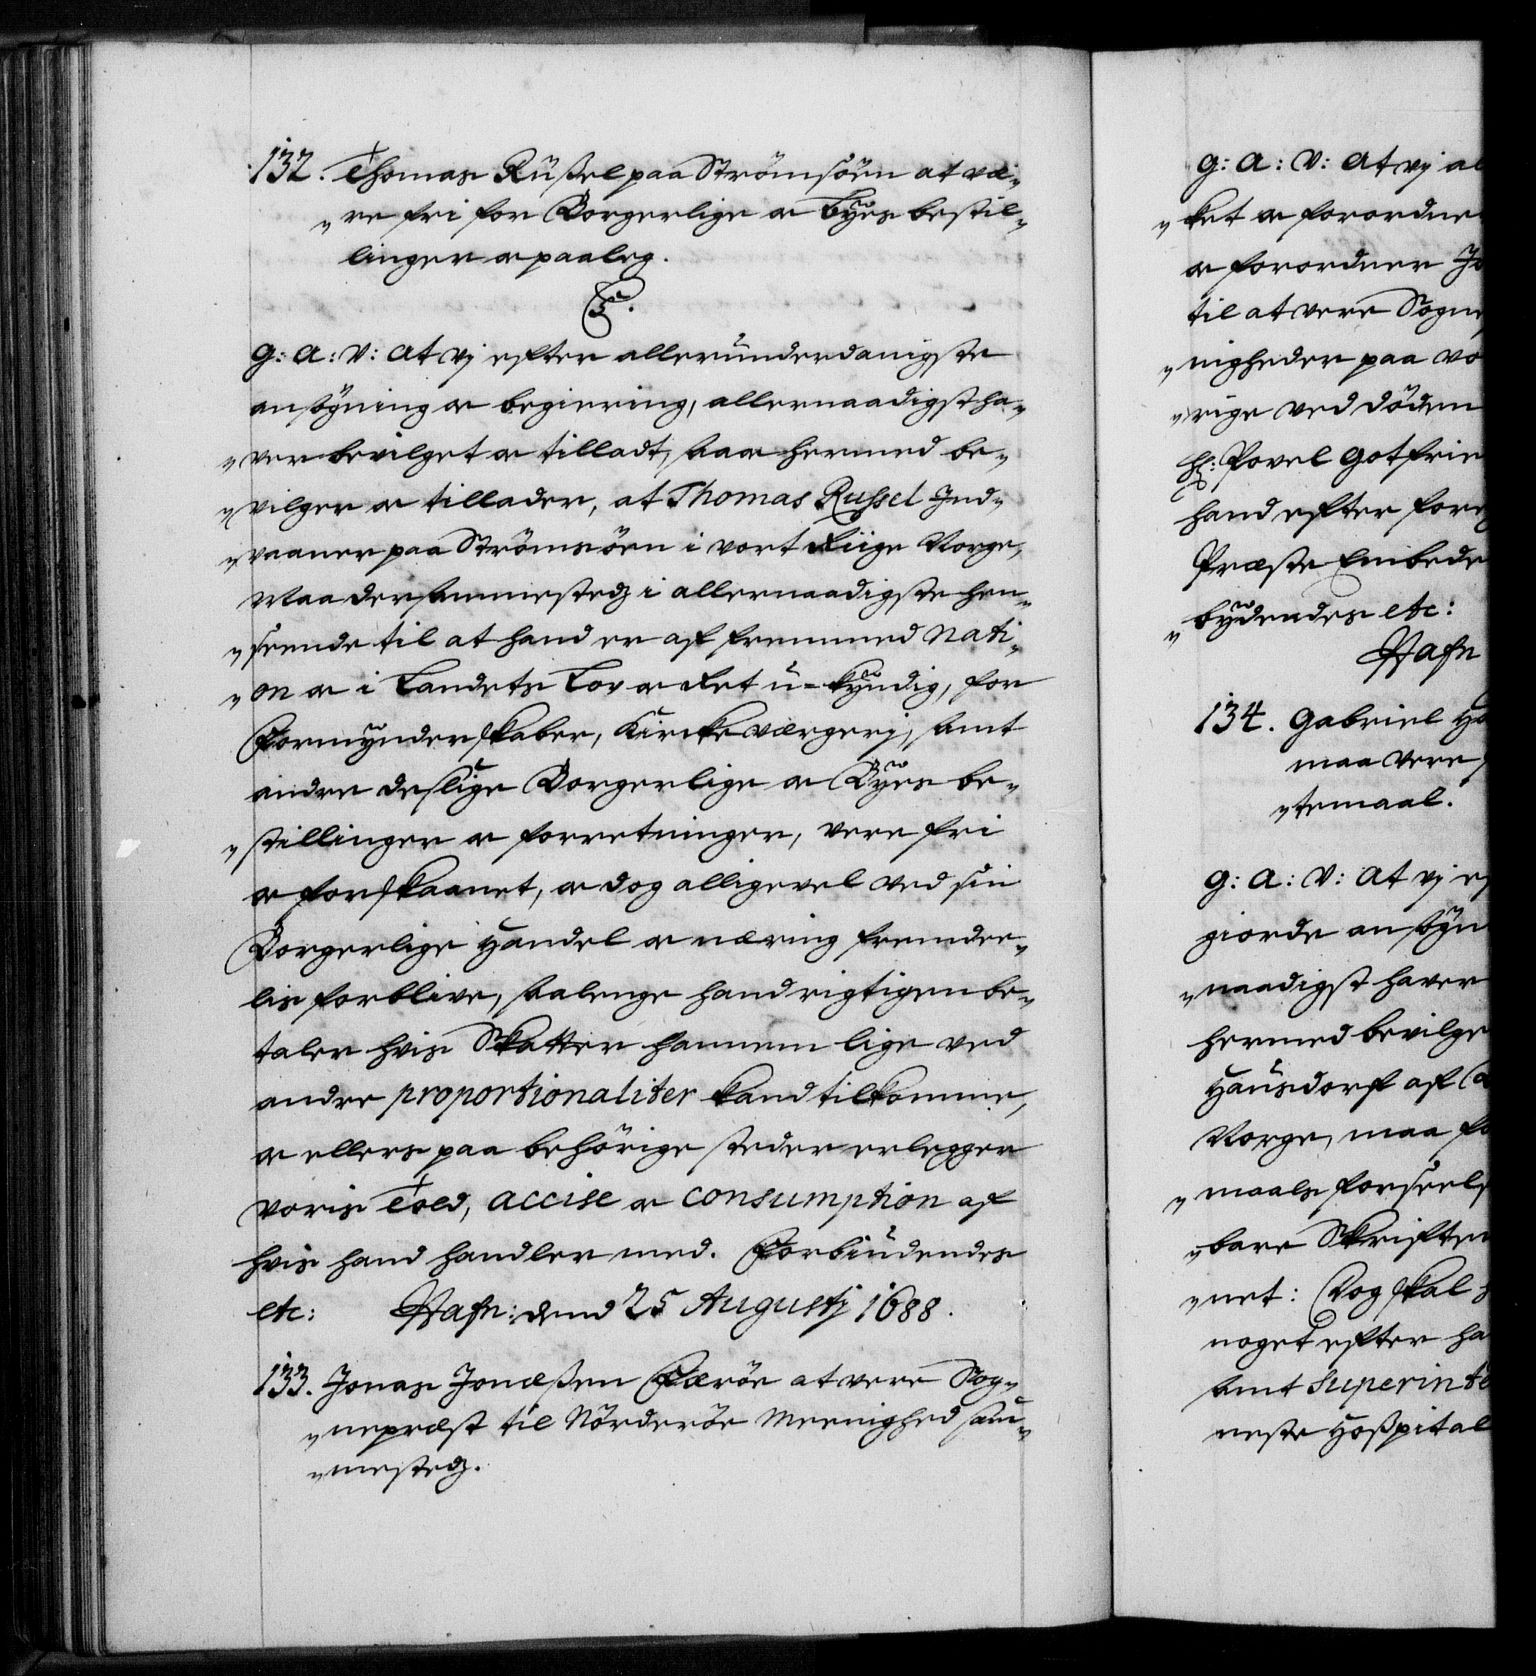 132. Thomas Rüssel paa Strömsöen at væ-
"re fri for Borgerlige og Byes bestil-
linger og paaleg.
C5.
G: A: V: At vj efter allerunderdanigste
ansögning og begiering, allernaadigst ha-
"ver bevilget og tilladt, saa og hermed be-
"vilger og tillader, at Thomas Russel Ind-
"vaaner paa Strömsöen i vort Riige Norge,
Maa dersammestedz i allernaadigste hen-
"seende til at hand er af fremmed Nati-
"on og i Landets Lov og Ret u=kyndig, for
Formynderskaber, Kirckeværgerj, samt
andre deslige Borgerlige og Byes be-
"stillinger og forretninger, være fri
og forskaanet, og dog alligevel ved sin
Borgerlige Handel og næring fremdee-
lis forblive, saalenge hand rigtigen be-
taler hvis Skatter hannem lige ved
andre proportionaliter kand tilkomme,
og ellers paa behörige steder erlegger
Voris Told, accise og Consumption af
hvis hand handler med. Forbiudendes
etc: Hafn: dend 25 Augustj 1688.
133. Jonas Jonæssen Færöe at være Sog-
"nepræst til Nörderöe Meenighed sam-
"mestedz.
G: A: V: At vj al
"ket og forordne
og forordner Jo
til at være Sogne
"nigheder paa Vo
"rige ved döden
Hr: Povel Gotfrie
hand efter fore
Præste Embede
"bydendes etc:
Hafn
134. Gabriel Ha
maa være
"temaal.
G: A: V: At vj ef
giorde ansögn
"naadigst haver
hermed bevilge
Hausdorf af
Norge, maa fo
"maals forseels
"bare Skriften
"net: Dog skal
noget efter ha
samt Superinte
neste Hospital